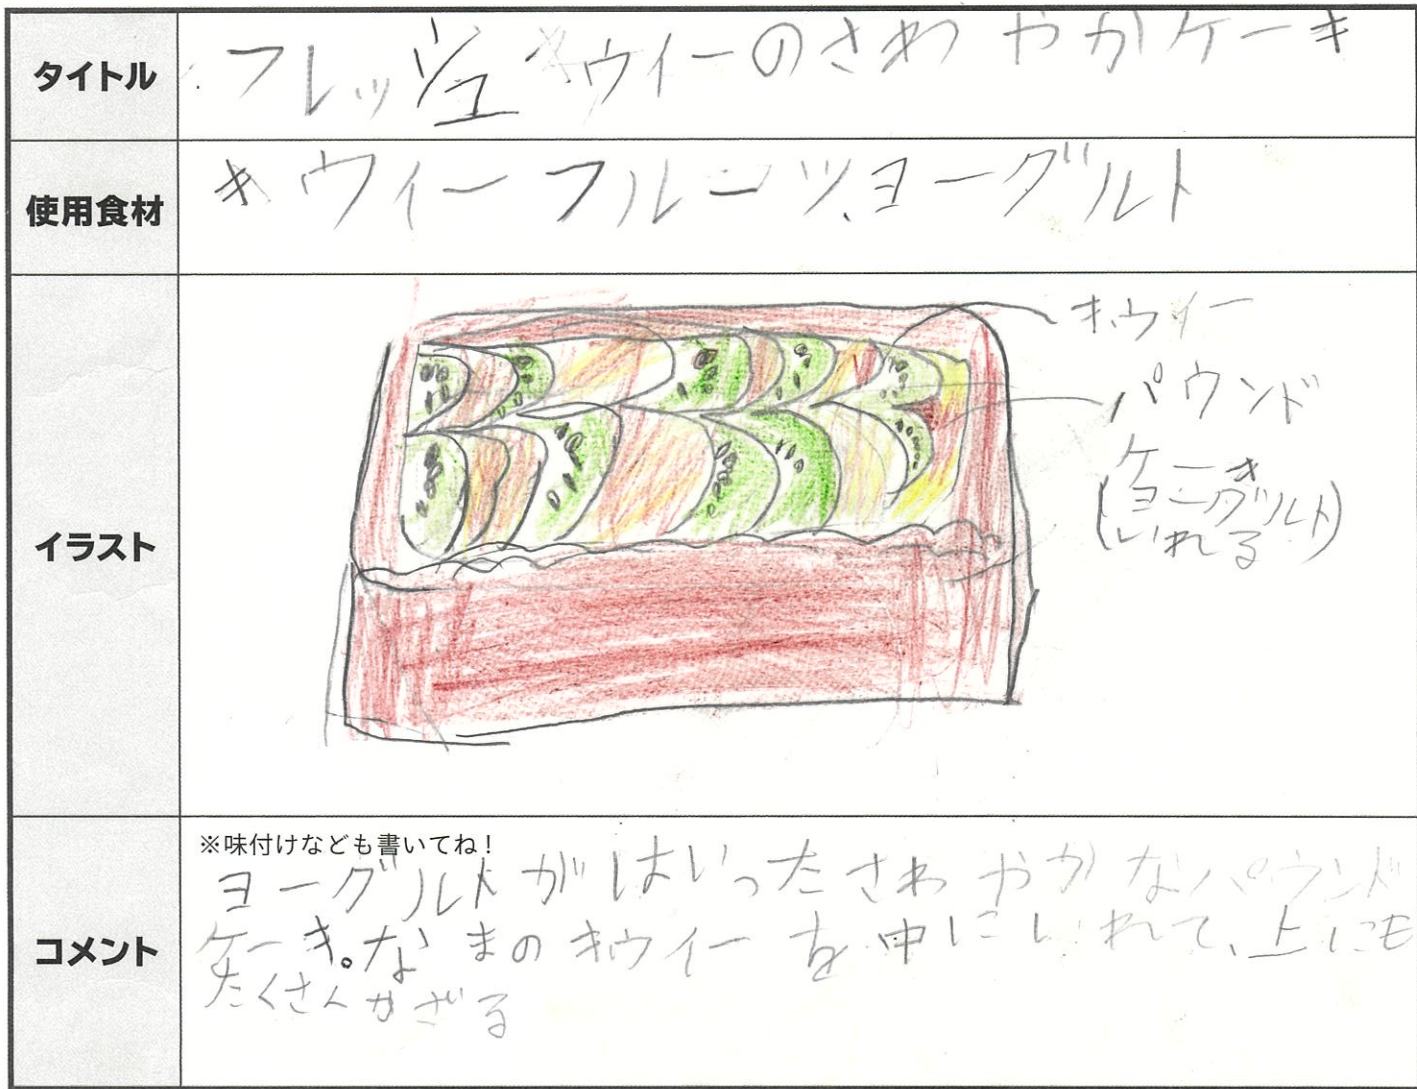 タイトル
フレッシュキウイーのさわやかケーキ
使用食材
キウイーフルーツ、ヨーグルト
イラスト
キウイー
パウンド
ケーキ
(ヨーグルト
いれる)
コメント
※味付けなども書いてね!
ヨーグルトがはいったさわやかなパウンド
ケーキ。なまのキウイーを中にいれて、上にも
たくさんかざる